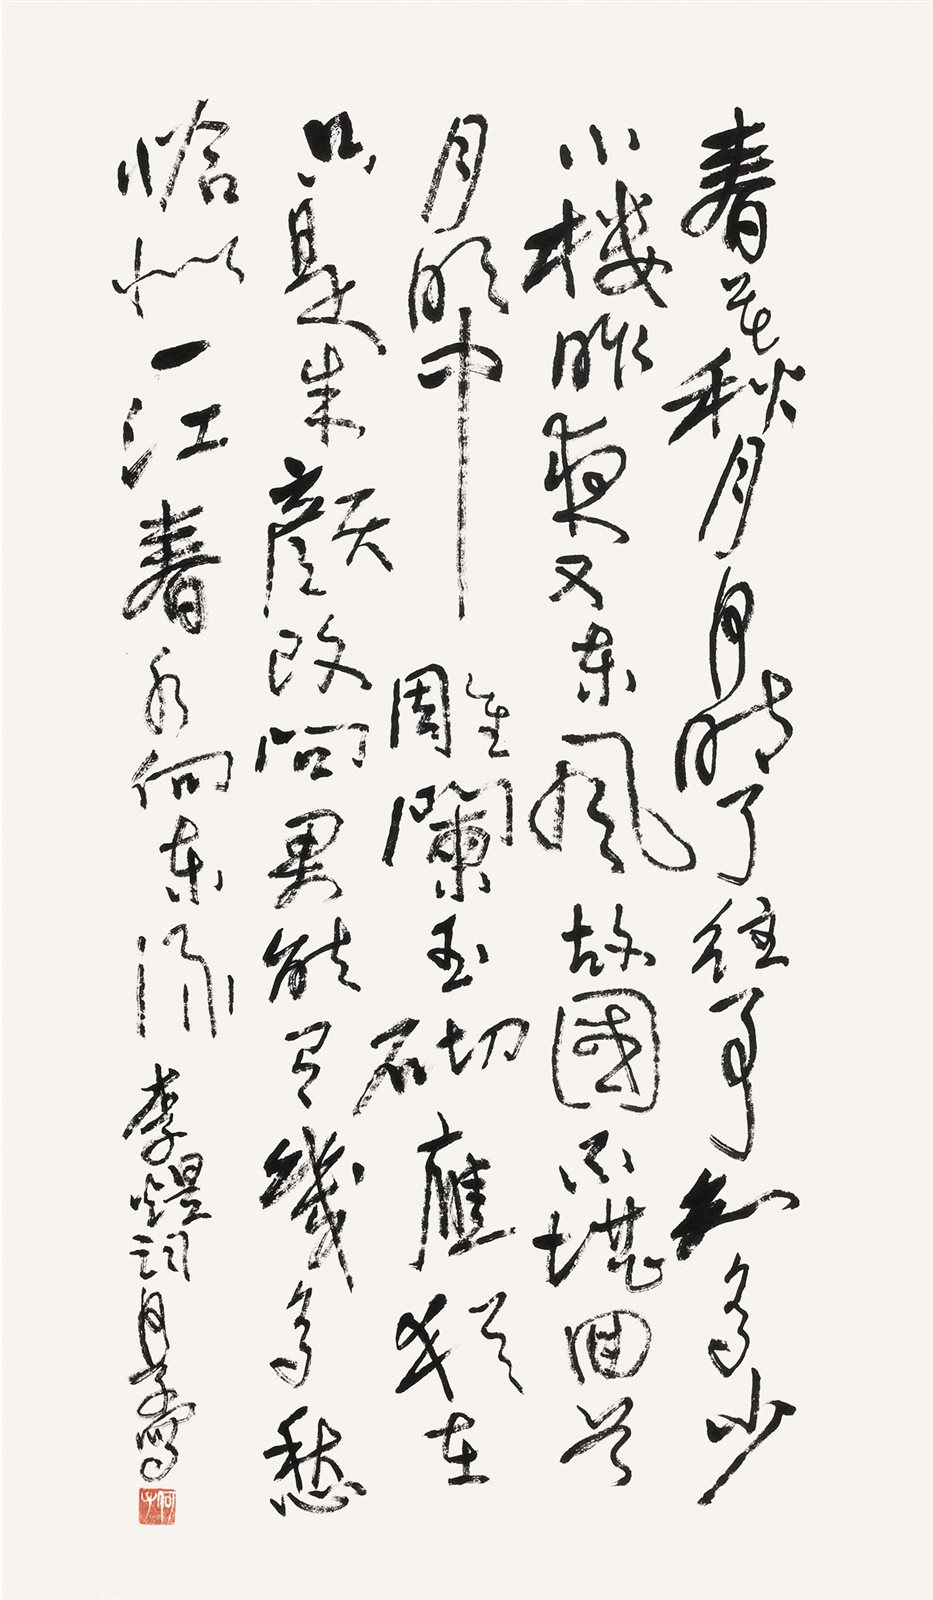 春花秋月何時了往事知多少
小樓昨夜又東風故國不堪回首
月明中雕闌玉砌應猶在
只是朱顏改問君能有幾多愁
恰似一江春水向東流 李煜詞 寫